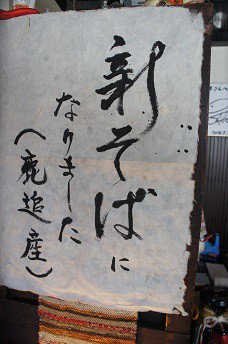 新そばに
なりました
（鹿追産）